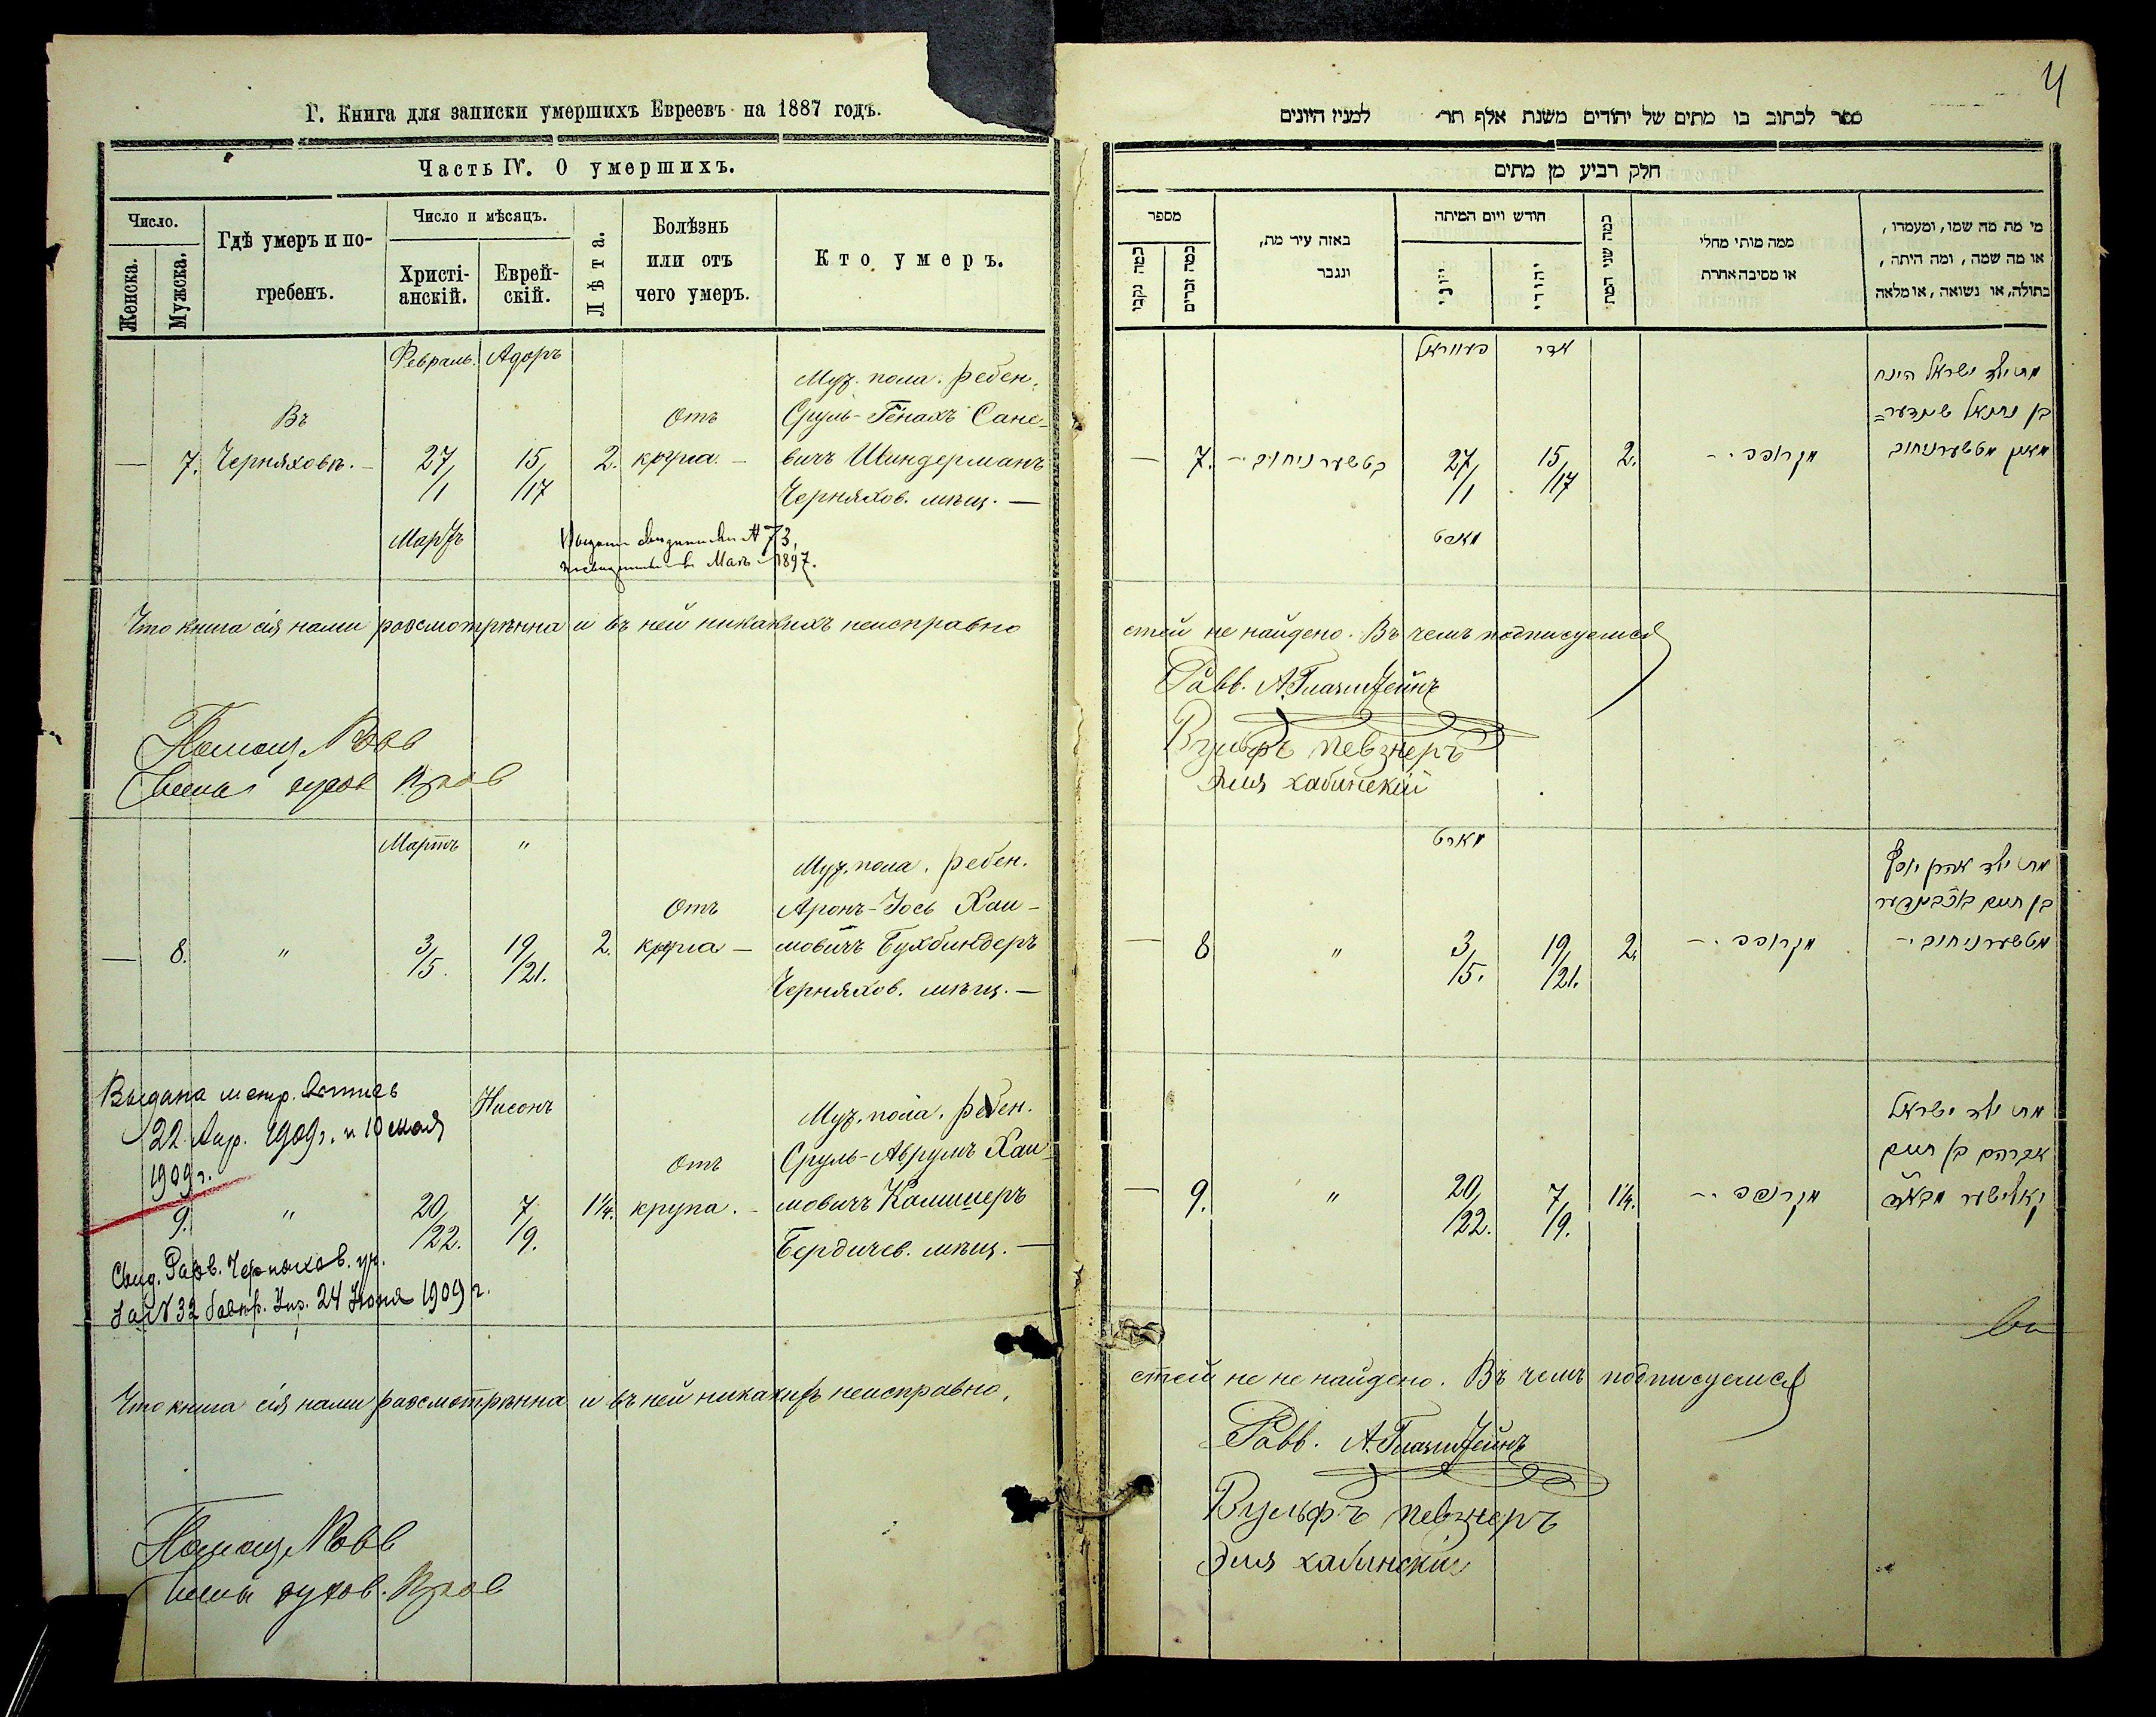 Г. Книга для записки умершихъ Евреевъ на 1887 годъ.
Часть IV. О умершихъ.
Число.
Женска.
Мужска.
Гдѣ умеръ и по-
гребенъ.
Число и мѣсяцъ.
Христі-
анскій.
Еврей-
скій.
Лѣта.
Болѣзнь
или отъ
чего умеръ.
Кто умеръ.
Февраль. Адаръ
Муж. пола. ребен.
Въ Отъ Сруль-Генахъ Сане-
— 7. Черняховѣ. — 27/ 15/ 2. крупа. — вичъ Шиндерманъ
/1 /17 Черняхов. мѣщ. —
Мартъ
№ 73,
1897.
Что книга сія нами разсмотрѣнна и въ ней никакихъ неисправно
Помощ.
духов.
Мартъ "
Муж. пола. ребен.
Отъ Аронъ-Іось Хаи-
— 8. " 3/ 19/ 2. крупа — мовичъ Бухбиндеръ
/5. /21. Черняхов. мѣщ. —
Выдана метр.
22 Апр. 1909 г. и 10 мая
1909 г.
Нисонъ
Муж. пола. ребен.
Отъ Сруль-Аврумъ Хаи-
9. " 20/ 7/ 1¼. крупа. — мовичъ Калишеръ
/22. /9. Бердичев. мѣщ. —
Свид. Равв. Черняхов. уч.
За № 32 24 Іюня 1909 г.
Что книга сія нами разсмотрѣнна и въ ней никакихъ неисправно,
Помощ.
духов.
4
ספר לכתוב בו מתים של יהודים משנת אלף תר למנין היונים
חלק רביע מן מתים
מספר
כמה נקבו
כמה זכרים
באזה עיר מת,
ונגבר
חודש ויום המיתה
יווני
יהודי
כמה שני המת
ממה מותי מחלי
או מסיבה אחרת
מי מת מה שמו, ומעמדו,
או מה שמה, ומה היתה,
בתולה, או נשואה, או מלאה
פעווראל אדר
מת ילד ישראל הינח
בן נתנאל שינדער=
— 7. בטשערניחוב — 27/ 15/ 2. מקרופפ — מאן מטשערניחוב
/1 /17
מארט
стей не найдено. Въ чемъ подписуемся
Равв. А. Глазштейнъ
Вульфъ Певзнеръ
Эля Хабинскій
מארט
מת ילד אהרן יוסף
בן חיים בוכבינדער
— 8 " 3/ 19/ 2. מקרופפ — מטשערניחוב —
/5. /21.
מת ילד ישראל
אברהם בן חיים
— 9. " 20/ 7/ 1¼. מקרופפ — קאלישער
/22. /9.
стей не не найдено. Въ чемъ подписуемся
Равв. А. Глазштейнъ
Вульфъ Певзнеръ
Эля Хабинскій